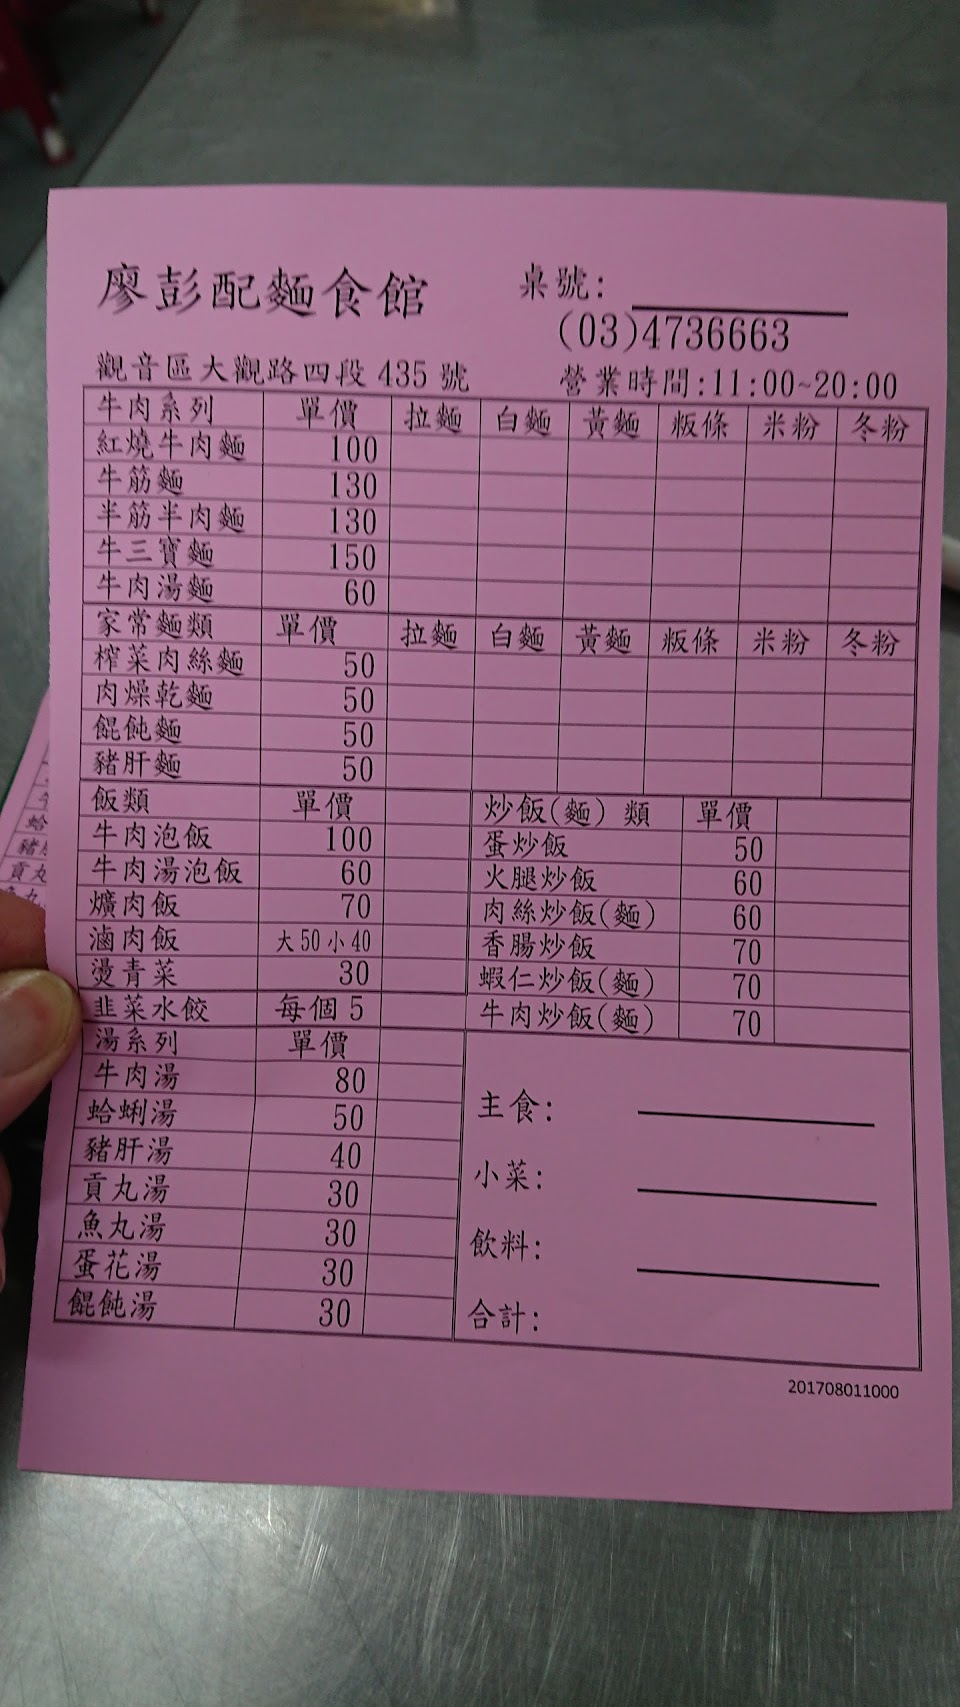 廖彭配麵食館 桌號:
(03)4736663
觀音區大觀路四段 435 號 營業時間:11:00~20:00
牛肉系列 單價 拉麵 白麵 黃麵 粄條 米粉 冬粉
紅燒牛肉麵 100
牛筋麵 130
半筋半肉麵 130
牛三寶麵 150
牛肉湯麵 60
家常麵類 單價 拉麵 白麵 黃麵 粄條 米粉 冬粉
榨菜肉絲麵 50
肉燥乾麵 50
餛飩麵 50
豬肝麵 50
飯類 單價
牛肉泡飯 100
牛肉湯泡飯 60
爌肉飯 70
滷肉飯 大 50 小 40
燙青菜 30
韭菜水餃 每個 5
炒飯(麵) 類 單價
蛋炒飯 50
火腿炒飯 60
肉絲炒飯(麵) 60
香腸炒飯 70
蝦仁炒飯(麵) 70
牛肉炒飯(麵) 70
湯系列 單價
牛肉湯 80
蛤蜊湯 50
豬肝湯 40
貢丸湯 30
魚丸湯 30
蛋花湯 30
餛飩湯 30
主食:
小菜:
飲料:
合計:
201708011000